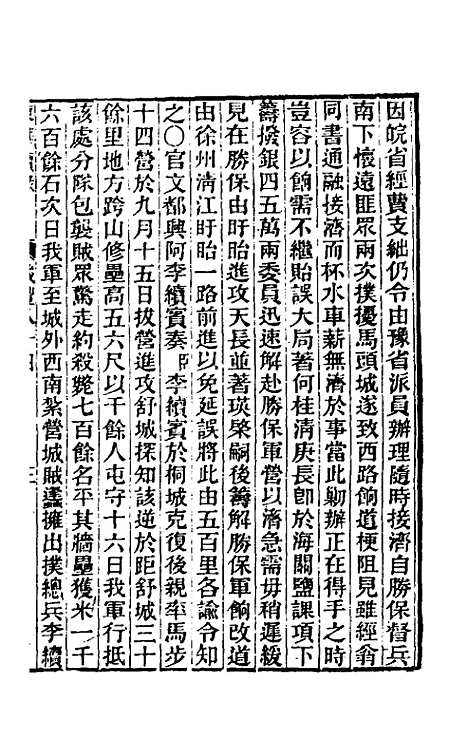 因皖省經費支絀仍令由豫省派員辦理隨時接濟自勝保督兵
南下懷遠匪眾兩次撲擾馬頭城遂致西路餉道梗阻見雖經翁
同書通融接濟而杯水車薪無濟於事當此勦辦正在得手之時
豈容以餉需不繼貽誤大局著何桂清庚長卽於海關鹽課項下
籌撥銀四五萬兩委員迅速解赴勝保軍營以濟急需毋稍遲緩
見在勝保由盱眙進攻天長並著瑛棨嗣後籌解勝保軍餉改道
由徐州清江盱眙一路前進以免延誤將此由五百里各諭令知
之○官文都興阿李續賓奏李續賓於桐城克復後親率馬步
十四營於九月十五日拔營進攻舒城探知該逆於距舒城三十
餘里地方跨山修壘高五六尺以千餘人屯守十六日我軍行抵
該處分隊包襲賊眾驚走約殺斃七百餘名平其牆壘獲米一千
六百餘石次日我軍至城外西南紮營城賊蠭擁出撲總兵李續